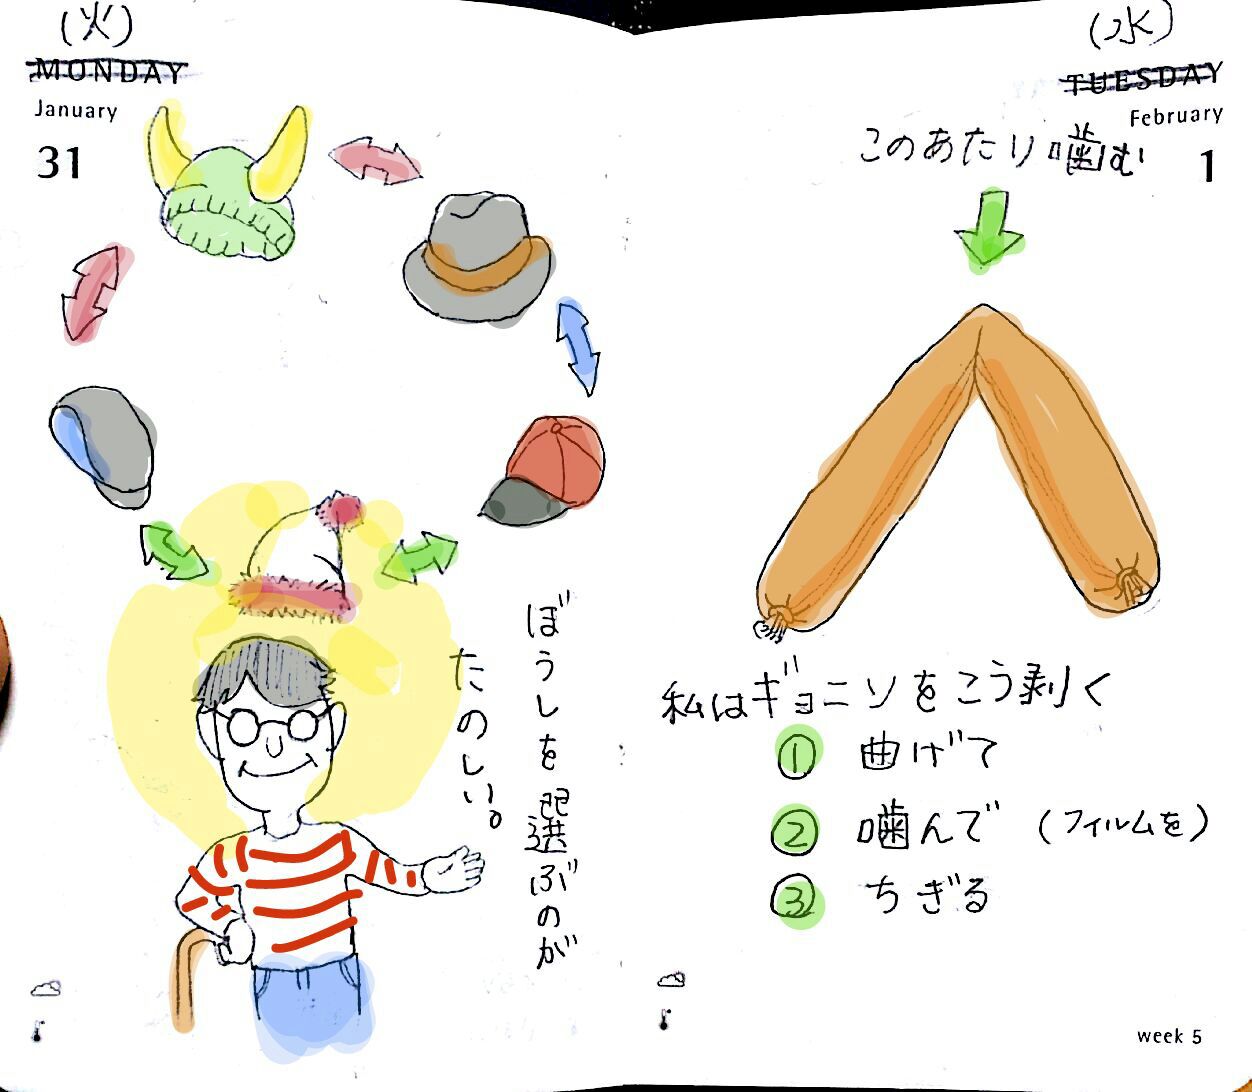 (火)
MONDAY
January
31
ぼうしを選ぶのが
たのしい。
(水)
TUESDAY
February
1
このあたり噛む
私はギョニソをこう剥く
① 曲げて
② 噛んで (フィルムを)
③ ちぎる
week 5